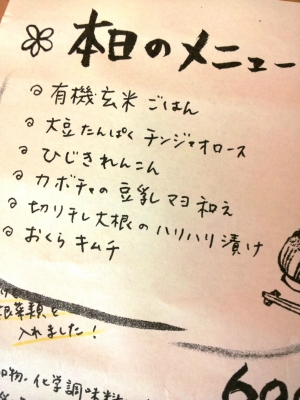 本日のメニュー
有機玄米ごはん
大豆たんぱくチンジャオロース
ひじきれんこん
カボチャの豆乳マヨ和え
切り干し大根のハリハリ漬け
おくらキムチ
根菜類を
入れました!
加物・化学調味料
600